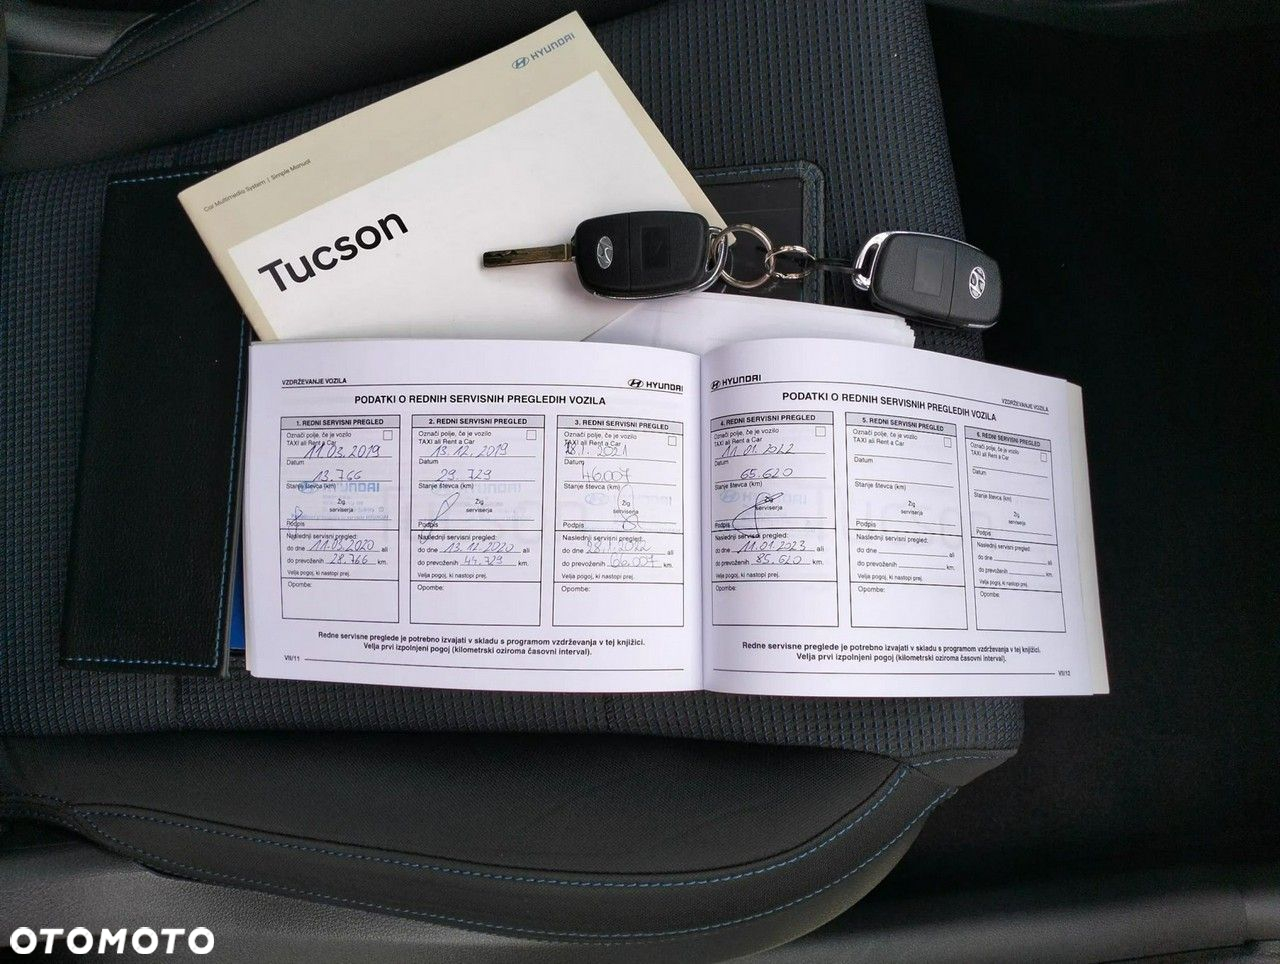 HYUNDAI
Car Multimedia System | Simple Manual
Tucson
VZDRŽEVANJE VOZILA
HYUNDAI
PODATKI O REDNIH SERVISNIH PREGLEDIH VOZILA
1. REDNI SERVISNI PREGLED
Označi polje, če je vozilo
TAXI ali Rent a Car
11.03.2019
Datum
13.766
Stanje števca (km)
Žig
serviserja
Podpis
Naslednji servisni pregled:
do dne 11.03.2020 ali
do prevoženih 28.766 km.
Velja pogoj, ki nastopi prej.
Opombe:
2. REDNI SERVISNI PREGLED
Označi polje, če je vozilo
TAXI ali Rent a Car
13.12.2019
Datum
29.729
Stanje števca (km)
Žig
serviserja
Podpis
Naslednji servisni pregled:
do dne 13.12.2020 ali
do prevoženih 44.729 km.
Velja pogoj, ki nastopi prej.
Opombe:
3. REDNI SERVISNI PREGLED
Označi polje, če je vozilo
TAXI ali Rent a Car
28.1.2021
Datum
46.007
Stanje števca (km)
Žig
serviserja
Podpis
Naslednji servisni pregled:
do dne 28.1.2022 ali
do prevoženih 66.007 km.
Velja pogoj, ki nastopi prej.
Opombe:
Redne servisne preglede je potrebno izvajati v skladu s programom vzdrževanja v tej knjižici.
Velja prvi izpolnjeni pogoj (kilometrski oziroma časovni interval).
VII/11
HYUNDAI
VZDRŽEVANJE VOZILA
PODATKI O REDNIH SERVISNIH PREGLEDIH VOZILA
4. REDNI SERVISNI PREGLED
Označi polje, če je vozilo
TAXI ali Rent a Car
11.01.2022
Datum
65.620
Stanje števca (km)
Žig
serviserja
Podpis
Naslednji servisni pregled:
do dne 11.01.2023 ali
do prevoženih 85.620 km.
Velja pogoj, ki nastopi prej.
Opombe:
5. REDNI SERVISNI PREGLED
Označi polje, če je vozilo
TAXI ali Rent a Car
Datum
Stanje števca (km)
Žig
serviserja
Podpis
Naslednji servisni pregled:
do dne ali
do prevoženih km.
Velja pogoj, ki nastopi prej.
Opombe:
6. REDNI SERVISNI PREGLED
Označi polje, če je vozilo
TAXI ali Rent a Car
Datum
Stanje števca (km)
Žig
serviserja
Podpis
Naslednji servisni pregled:
do dne ali
do prevoženih km.
Velja pogoj, ki nastopi prej.
Opombe:
Redne servisne preglede je potrebno izvajati v skladu s programom vzdrževanja v tej knjižici.
Velja prvi izpolnjeni pogoj (kilometrski oziroma časovni interval).
VII/12
OTOMOTO